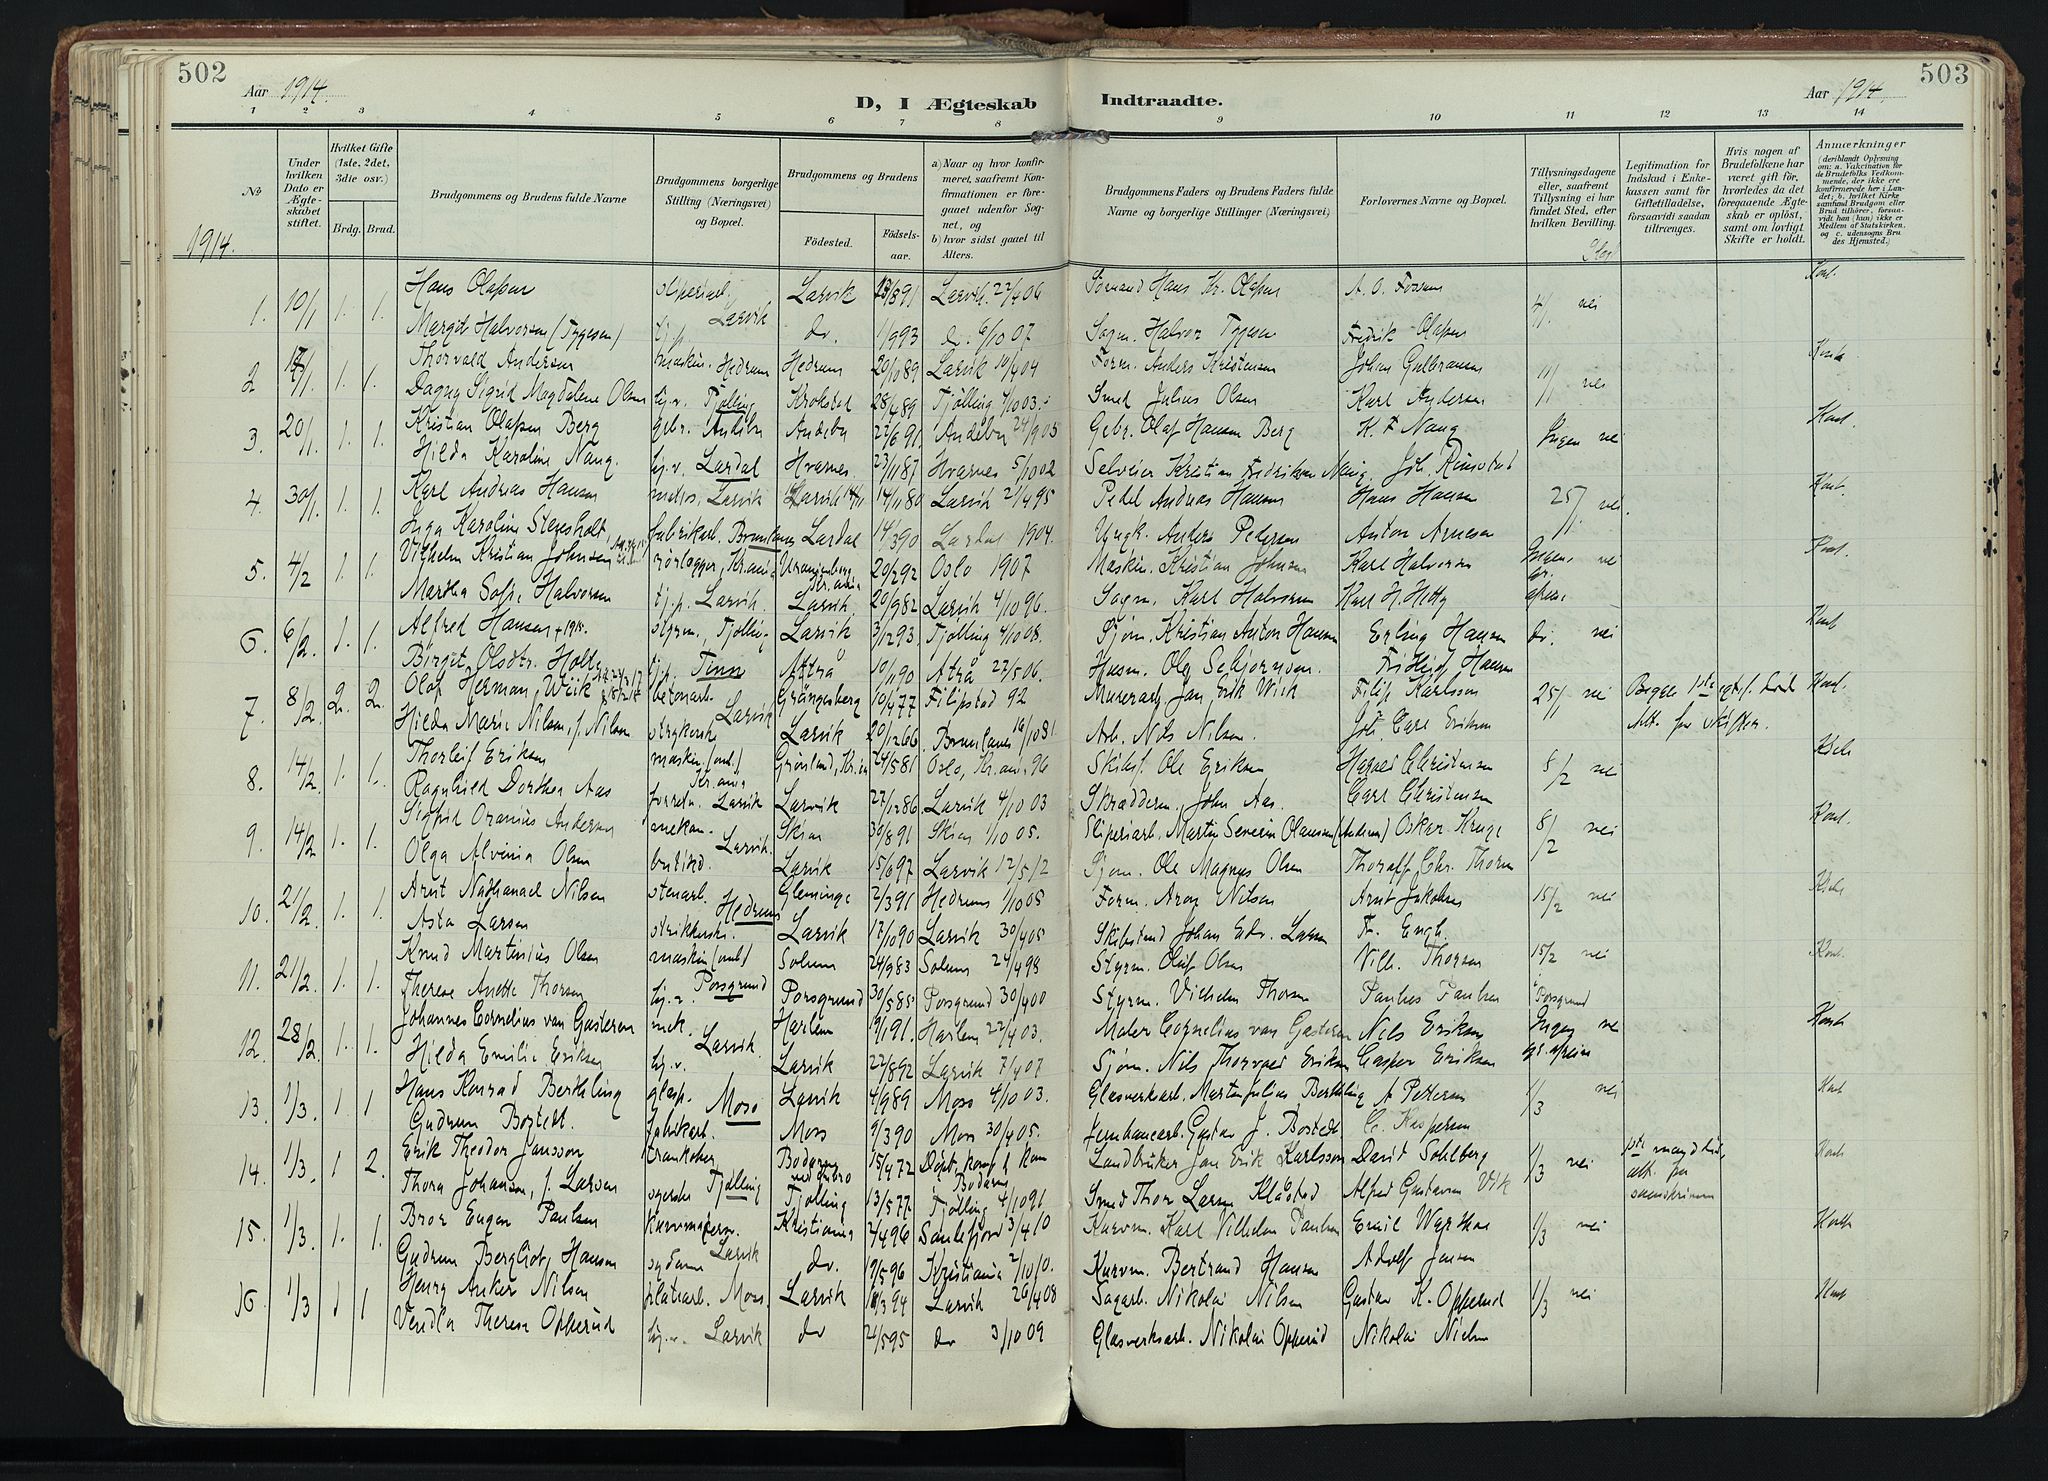 502
Aar 1914.
D, I Ægteskab Indtraadte.
Aar 1914.
503
1 2 3 4 5 6 7 8 9 10 11 12 13 14
No
Under hvilken Dato er Ægteskabet stiftet.
Hvilket Gifte (1ste, 2det, 3die osv.)
Brdg. Brud.
Brudgommens og Brudens fulde Navne
Brudgommens borgerlige Stilling (Næringsvei) og Bopæl.
Brudgommens og Brudens
Fødested. Fødselsaar.
a) Naar og hvor konfirmeret, saafremt Konfirmationen er foregaaet udenfor Sognet, og
b) hvor sidst gaaet til Alters.
Brudgommens Faders og Brudens Faders fulde Navne og borgerlige Stillinger (Næringsvei)
Forlovernes Navne og Bopæl.
Tillysningsdagene eller, saafremt Tillysning ei har fundet Sted, efter hvilken Bevilling.
Legitimation for Indskud i Enkekassen samt for Giftetilladelse, forsaavidt saadan tiltrænges.
Hvis nogen af Brudefolkene har været gift før, hvorledes da det foregaaende Ægteskab er opløst, samt om lovligt Skifte er holdt.
Anmærkninger
(deriblandt Oplysning om: a. Vakcination for de Brudefolks Vedkommende, der ikke ere konfirmerede her i Landet; b. hvilket Kirkesamfund Brudgom eller Brud tilhører, forsaavidt han (hun) ikke er Medlem af Statskirken, og c. udensogns Brudes Hjemsted.
1914.
1. 10/1 1. 1. Hans Olafsen Larvik Larvik 22/4 06 Hans Kr. Olafsen A. O. Fossum 4/1 nei Kont.
Margit Halvorsen (Tygesen) tj.p. Larvik do. 1/9 93 do. 6/10 07 Sagm. Halvor Tygesen Fredrik Olafsen
2 17/1 1. 1. Thorvald Andersen maskin. Hedrum Hedrum 20/10 89 Larvik 10/4 04 Form. Anders Kristensen Johan Gulbransen 11/1 nei
Dagny Sigrid Magdalene Olsen hj.v. Tjølling Krokstad 28/4 89 Tjølling 4/10 03. Smed Julius Olsen Karl Andersen
3. 20/1 1. 1. Kristian Olafsen Berg gbr. Andebu Andebu 22/6 91 Andebu 24/9 05 Gbr. Olaf Hansen Berg K. F. Nang Ingen nei Kont.
Hilda Karoline Nang. hj.v. Lardal Hvarnes 23/11 87 Hvarnes 5/10 02 Selveier Kristian Fredriksen Nang
4. 30/1. 1. 1. Karl Andreas Hansen Larvik Larvik 14/11 80 Larvik 21/4 95 Pedel Andreas Hansen Hans Hansen 25/1. nei. Kont.
Inga Karoline Stensholt, fabrikarb. Brunlanes Lardal 14/3 90 Lardal 1904. Anders Pedersen Anton Arnesen
5. 4/2 1. 1. Vilhelm Kristian Johnsen rørlægger, Kr.ania Uranienborg Kr.ania 20/2 92 Oslo 1907 Maskin. Kristian Johnsen Karl Halvorsen Ingen nei Kont.
Martha Sofie Halvorsen tj.p. Larvik. Larvik. 20/9 82 Larvik 4/10 96. Sagm. Karl Halvorsen Karl H. Hetty
6 6/2 1. 1. Alfred Hansen + 1915. styrm., Tjølling Larvik 3/12 93. Tjølling 4/10 08. Sjøm. Kristian Anton Hansen Erling Hansen do. nei Kont
Birgit Olsdtr. Holte tj.p. Tinn Attrå 10/11 90 Atrå 27/5 06. Husm. Ole Fridleif Hansen
7. 8/2. 2. 2. Olaf Herman Wiik betonarb. Larvik Grängesberg 10/4 77 Filipstad 92 Murerarb. Jan Erik Wiik Filip Karlsson 25/1 nei Begges 1ste egtef. død Att. fra skiften. Kont.
Hilda Marie Nilsen, f. Nilsen strykerske Larvik 20/12 66 Brunlanes 16/10 81. Arb. Nils Nilsen. Joh. Carl Eriksen
8. 14/2. 1. 1. Thorleif Eriksen maskin. (omb) Kr.ania Grønland, Kr.ania 24/5 81 Oslo, Kr.ania 96 Skibsf. Ole Eriksen Christensen 8/2 nei
Ragnhild Dorthea Aas Larvik Larvik 27/12 86 Larvik 4/10 03 Skræderm. John Aas. Carl Christensen
9. 14/2 1. 1. Sigfrid Oranius Andersen mekan. Larvik. Skien 30/8 91 Skien 1/10 05. Sliperiarb. Martin Severin Olaussen (Andersen) Oskar Kruge 8/2 nei Kont.
Olga Alvina Olsen butikd. Larvik 15/6 97 Larvik 12/5 12 Sjøm. Ole Magnus Olsen Thoralf Chr. Thorsen
10. 21/2. 1. 1. Arnt Nathanael Nilsen stenarb. Hedrum Gleminge 2/3 91 Hedrum 1/10 05 Form. Aron Nilsen Arnt Jakobsen 15/2 nei
Asta Larsen strikkerske. Larvik 17/10 90 Larvik 30/4 05 Johan Edv. Larsen F. Engh.
11. 21/2. 1. 1. Knud Martinius Olsen maskin (omb) Solum 24/9 83 Solum 24/4 98 Styrm. Oluf Olsen Vilh. Thorsen 15/2 nei Kont.
Therese Anette Thorsen hj.v. Porsgrund Porsgrund 30/5 85 Porsgrund 30/4 00 Styrm. Vilhelm Thorsen Paulus Paulsen i Porsgrund
12. 28/2. 1. 1. Johannes Cornelius van Gasteren mek. Larvik. Harlem 19/1 91. Harlem 22/4 03. Maler Cornelius van Gasteren Nils Eriksen Ingen nei Kont
Hilda Emilie Eriksen hj.v. Larvik 22/8 92 Larvik 7/4 07 Sjøm. Nils Thorvald Eriksen Casper Eriksen
13. 1/3. 1 1 Hans Konrad Berthling glasp. Moss Larvik 4/9 89 Moss 4/10 03. Glasverksarb. Martin Julius Berthling A Pettersen 1/3 nei Kont
Gudrun Bostedt. fabrikarb. Moss 9/3 90 Moss 30/4 05. Jernbanearb. Gustav J. Bostedt C. Kaspersen
14. 1/3. 1 2. Erik Theodor Jansson trankoker Tjølling Bodarne 15/4 72 Døpt, konf. & kom Bodarne Landbruker Jan Erik Karlsson David Sohlberg 1/3 nei 1ste mand død, att. fra Kont
Thora Johansen, f. Larsen syerske Tjølling 13/5 77. Tjølling 4/10 91 Smed Thor Larsen Klåstad Alfred Gustavsen Vik
15. 1/3. 1. 1. Bror Eugen Paulsen kurvmagersv. Larvik Kristiania 2/4 96 Sandefjord 3/4 10 Kurvm. Karl Vilhelm Paulsen Emil 1/3 nei
Gudrun Bergliot Hansen sydame do. 19/5 96 Kristiania 2/10 10. Kurvm. Bertrand Hansen Adolf Jensen
16. 1/3 1 1 Henry Anker Nilsen Moss. Larvik 18/3 94 Larvik 26/4 08 Sagarb. Nikolai Nilsen Gustav K. Opperud 1/3 nei Kont
Vendla Therese Opperud hj.v. Larvik do 21/5 95 do 3/10 09 Glasverksarb. Nikolai Opperud Nikolai Nielsen